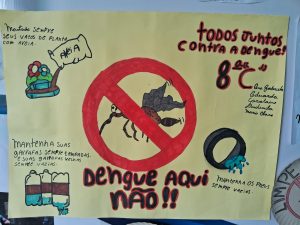 Mantenha sempre
seus vasos de planta
com areia.
AREIA
TODOS JUNTOS
CONTRA A DENGUE!
8ºs C's
Ana Gabriela
Eduarda
MANTENHA SUAS
GARRAFAS SEMPRE TAMPADAS
E SUAS GARRAFAS VAZIAS
SEMPRE VAZIAS
MANTENHA OS PNEUS
SEMPRE VAZIOS
DENGUE AQUI
NÃO!!